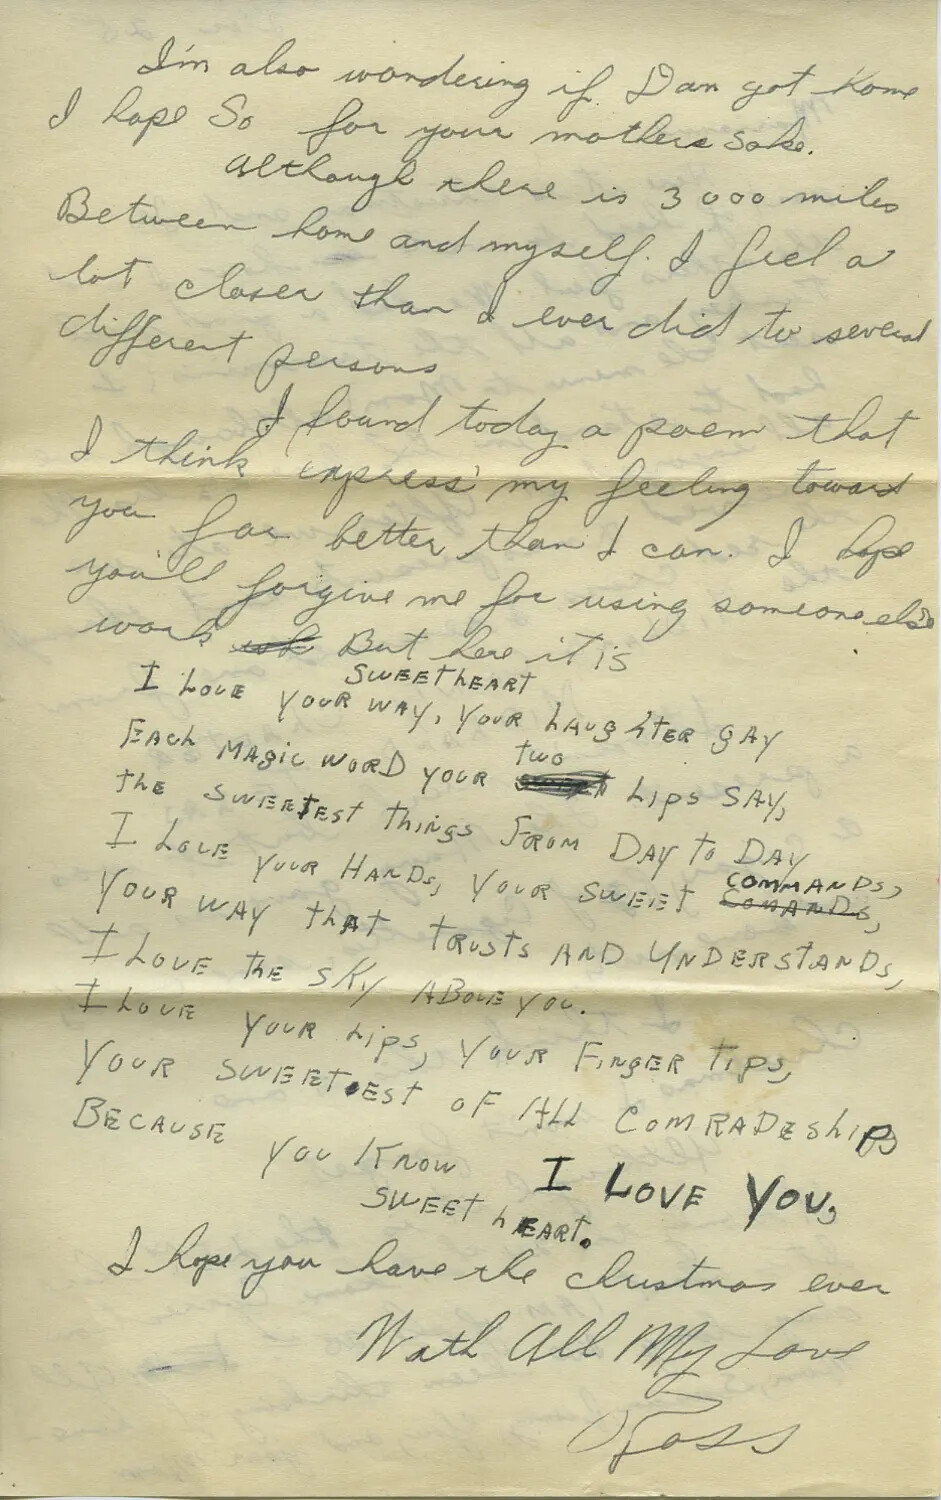 I'm also wondering if Dan got home
I hope So for your mothers sake.
Although there is 3000 miles
Between home and myself. I feel a
lot closer than I ever did to several
different persons
I found today a poem that
I think "express" my feeling toward
you far better than I can. I hope
you'll forgive me for using someone else's
work But here it is
SWEETHEART
I LOVE YOUR WAY, YOUR LAUGHTER GAY
EACH MAGIC WORD YOUR TWO LIPS SAY,
THE SWEETEST THINGS FROM DAY TO DAY
I LOVE YOUR HANDS, YOUR SWEET COMMANDS,
YOUR WAY THAT TRUSTS AND UNDERSTANDS,
I LOVE THE SKY ABOVE YOU.
I LOVE YOUR LIPS, YOUR FINGER TIPS,
YOUR SWEETEST OF ALL COMRADESHIPS
BECAUSE YOU KNOW I LOVE YOU,
SWEETHEART.
I hope you have the christmas ever
With All My Love
Ross